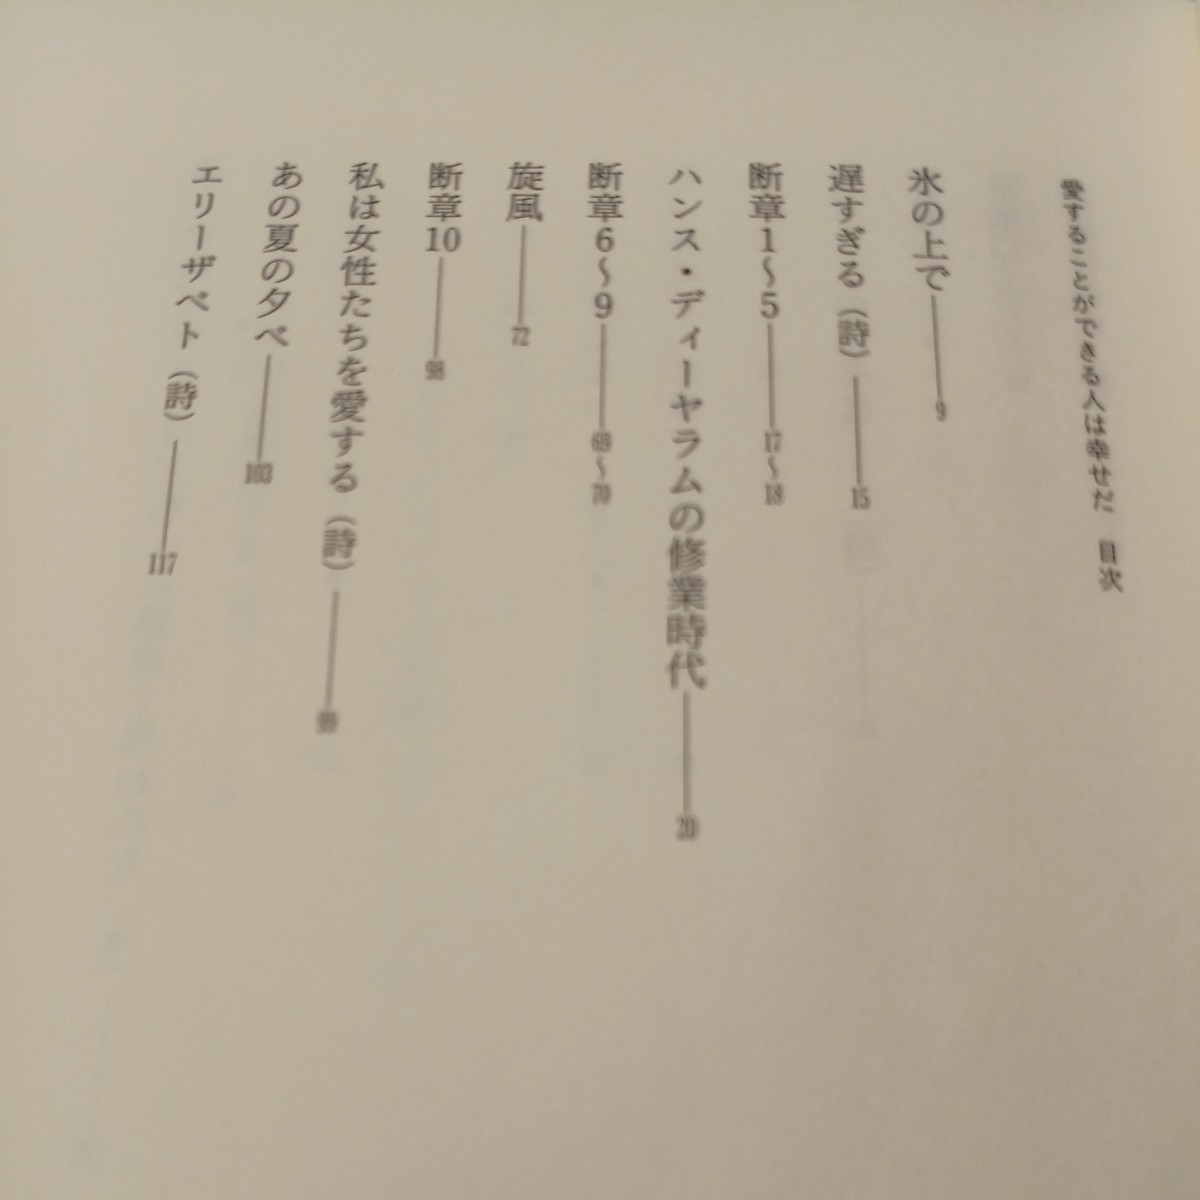 愛することができる人は幸せだ　目次
氷の上で――9
遅すぎる（詩）――15
断章1〜5――17〜18
ハンス・ディーヤラムの修業時代――20
断章6〜9――69〜70
旋風――72
断章10――98
私は女性たちを愛する（詩）――99
あの夏の夕べ――103
エリーザベト（詩）――117